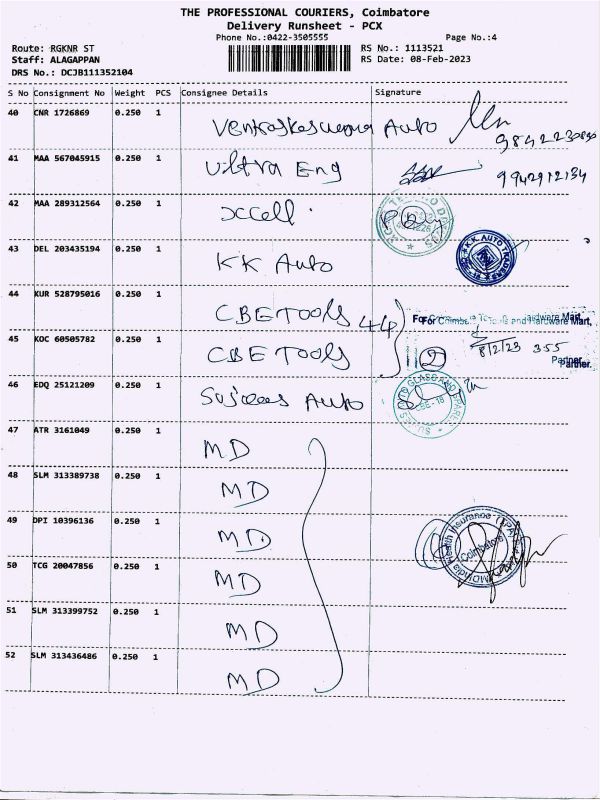 THE PROFESSIONAL COURIERS, Coimbatore
Delivery Runsheet - PCX
Phone No.:0422-3505555 Page No.:4
Route: RGKNR ST RS No.: 1113521
Staff: ALAGAPPAN RS Date: 08-Feb-2023
DRS No.: DCJB111352104
S No Consignment No Weight PCS Consignee Details Signature
40 CNR 1726869 0.250 1 Auto
41 MAA 567045915 0.250 1 Ultra Eng 9942912134
42 MAA 289312564 0.250 1 Xcell
43 DEL 203435194 0.250 1 KK Auto K.K. AUTO
44 KUR 528795016 0.250 1 CBE TOOLS
For Coimbatore Tools and Hardware Mart,
45 KOC 60505782 0.250 1 CBE TOOLS 2 8/2/23 3 55
Partner.
46 EDQ 25121209 0.250 1 Auto
47 ATR 3161049 0.250 1 MD
48 SLM 313389738 0.250 1 MD
49 DPI 10396136 0.250 1 MD Coimbatore
50 TCG 20047856 0.250 1 MD
51 SLM 313399752 0.250 1 MD
52 SLM 313436486 0.250 1 MD